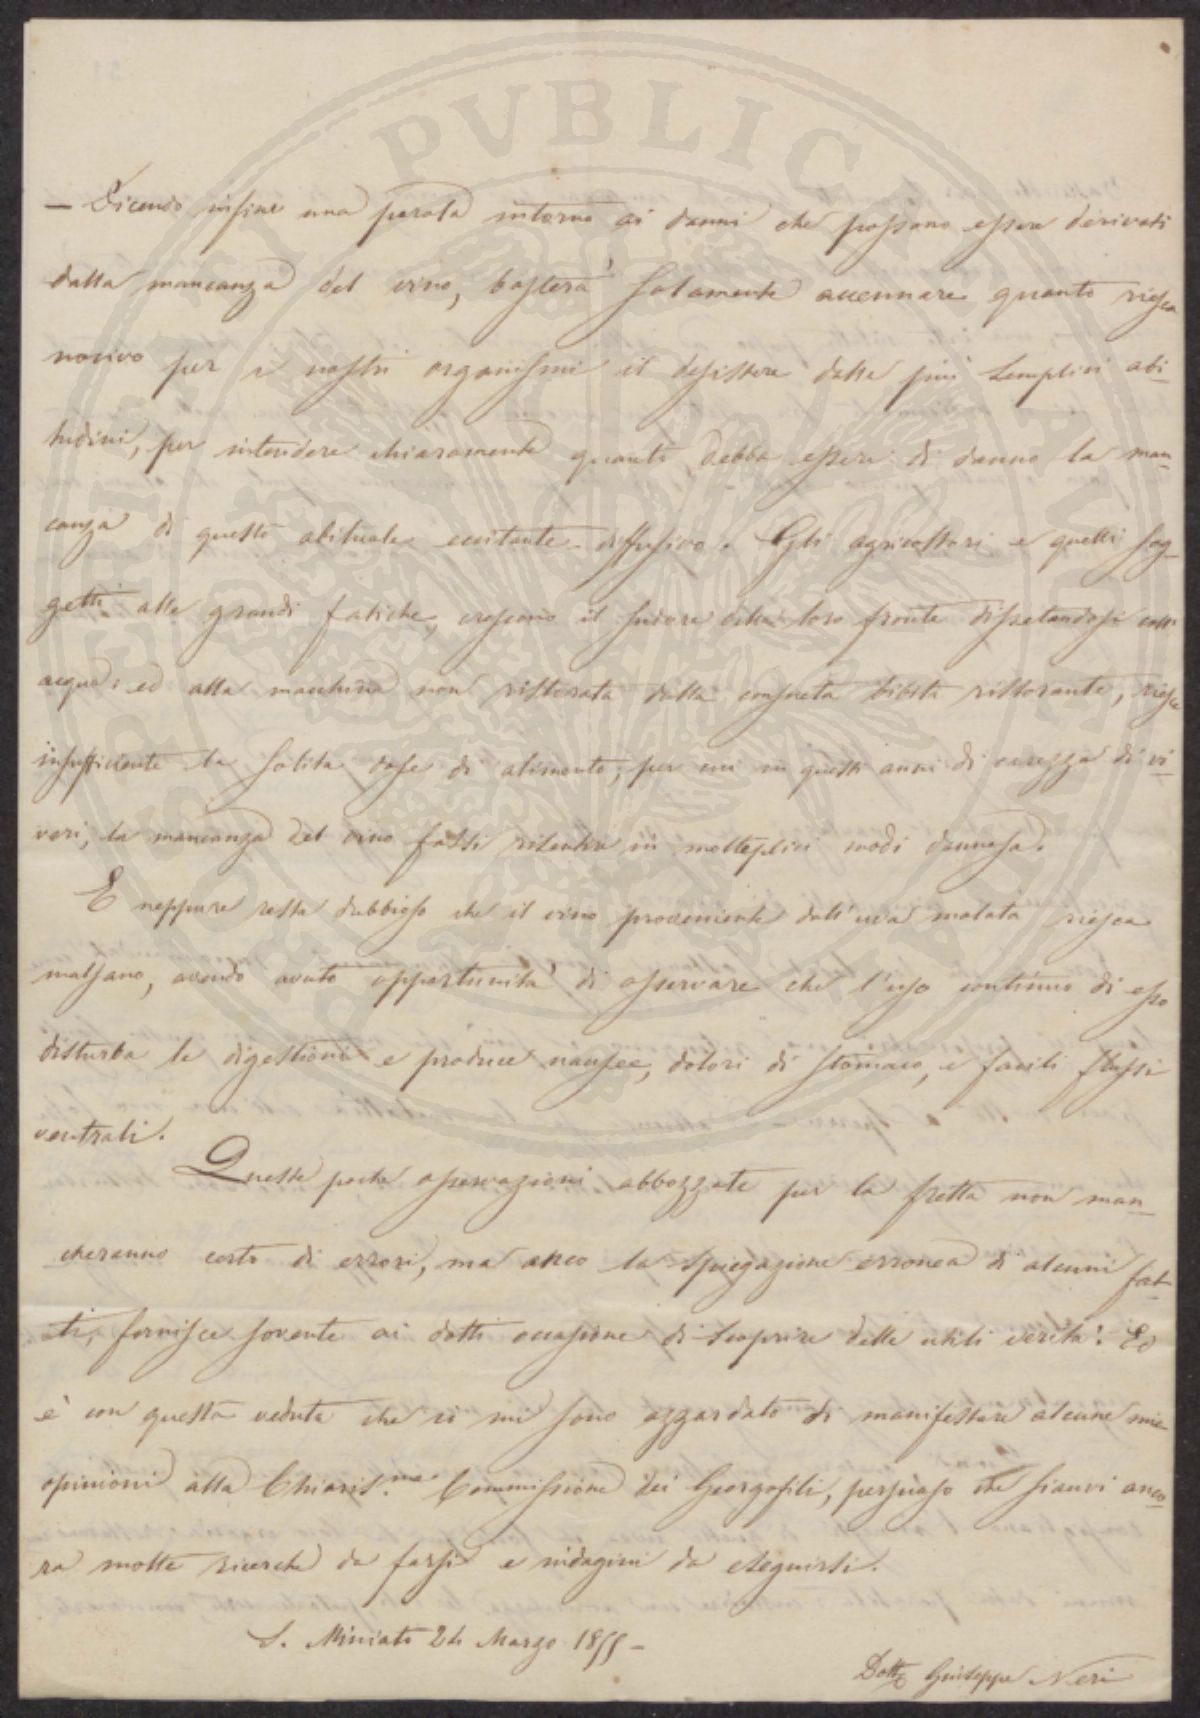 PVBLICAE
— Dicendo infine una parola intorno ai danni che possono essere derivati
dalla mancanza del vino, basterà solamente accennare quanto riesca
nocivo per i nostri organismi il desistere dalle più semplici abi-
tudini, per intendere chiaramente quanto debba essere di danno la man-
canza di questo abituale eccitante diffusivo. Gli agricoltori e quelli sog-
getti alle grandi fatiche, crescono il sudore della loro fronte dissetandosi coll'
acqua: ed alla macchina non ristorata dalla consueta bibita ristorante, riesce
insufficiente la solita dose di alimento, per cui in questi anni di carezza di vi-
veri, la mancanza del vino fassi risentire in molteplici modi dannosa.
E neppure resta dubbioso che il vino proveniente dall'uva malata riesca
malsano, avendo avuto opportunità di osservare che l'uso continuo di esso
disturba le digestioni e produce nausee, dolori di stomaco, e facili flussi
ventrali.
Queste poche osservazioni abbozzate per la fretta non man-
cheranno certo di errori, ma anco la spiegazione erronea di alcuni fat-
ti, fornisce sovente ai dotti occasione di scoprire delle utili verità. Ed
è con questa veduta che io mi sono azzardato di manifestare alcune mie
opinioni alla Chiaris.ma Commissione dei Georgofili, persuaso che sianvi anco-
ra molte ricerche da farsi e indagini da eseguirsi.
S. Miniato 24 Marzo 1855 —
Dotte Giuseppe Neri